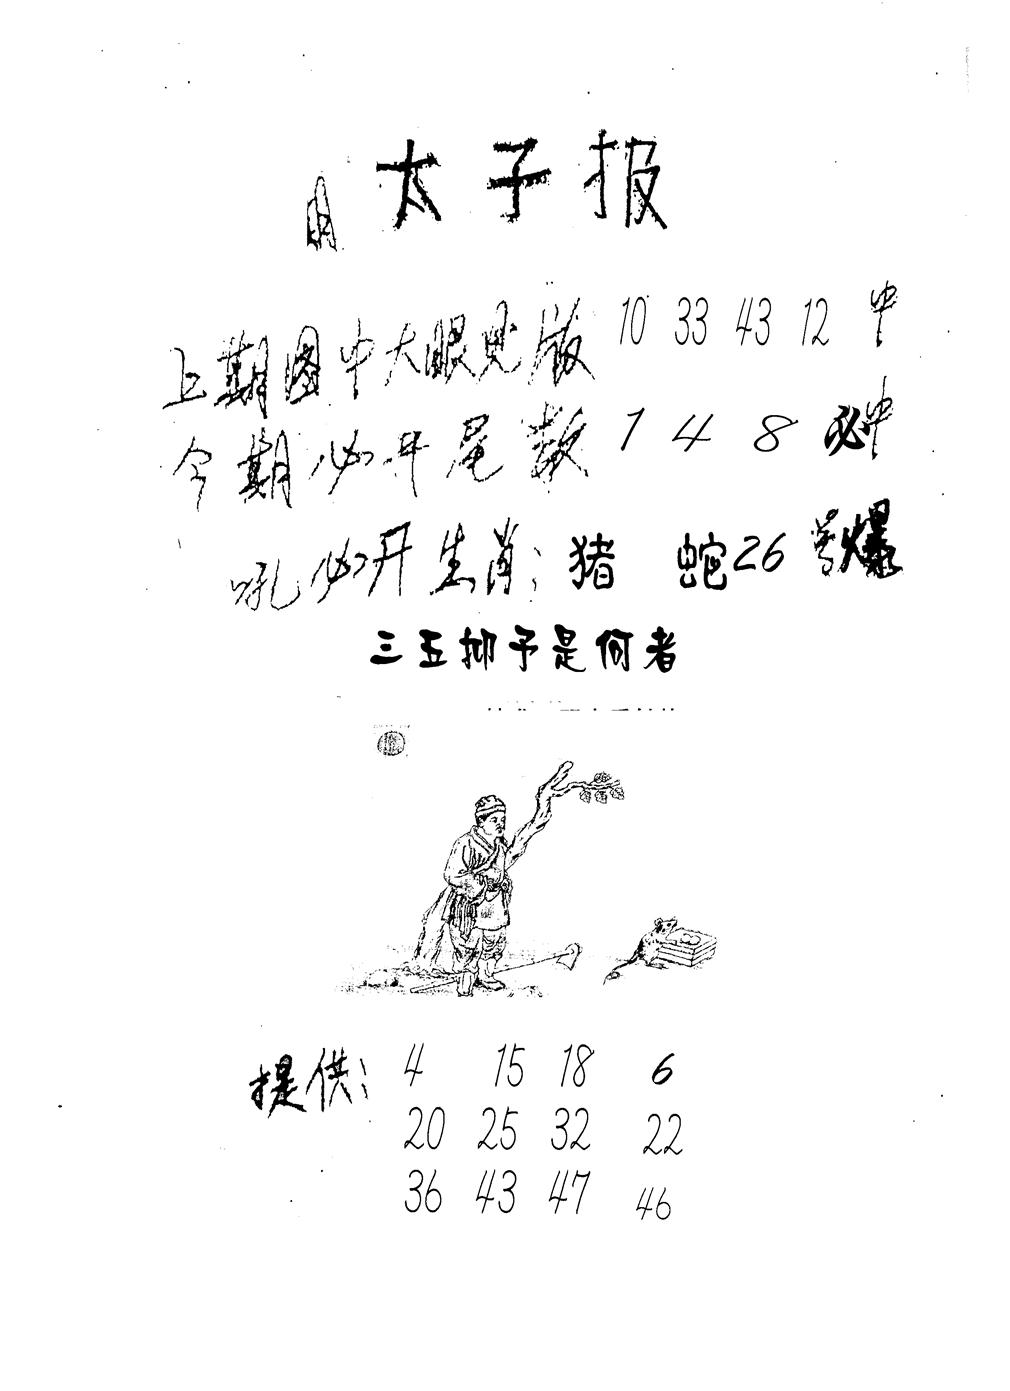 太子报
上期图中大眼见版 10 33 43 12 中
今期必开尾数 1 4 8 必中
吼必开生肖: 猪 蛇 26 号爆
三五抑予是何者
提供: 4 15 18 6
20 25 32 22
36 43 47 46